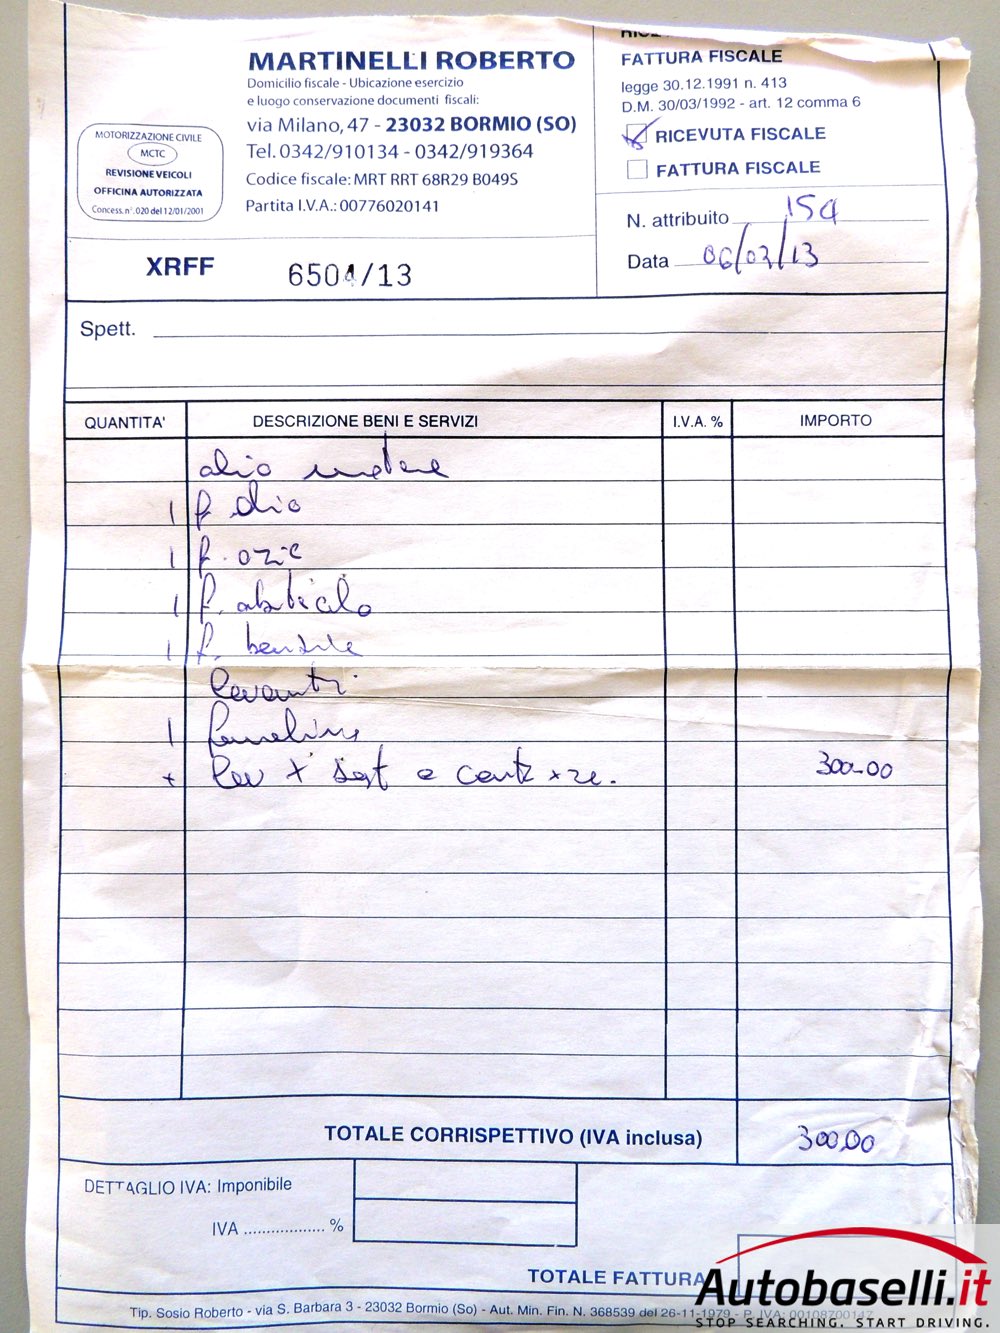 MARTINELLI ROBERTO
Domicilio fiscale - Ubicazione esercizio
e luogo conservazione documenti fiscali:
via Milano, 47 - 23032 BORMIO (SO)
Tel. 0342/910134 - 0342/919364
Codice fiscale: MRT RRT 68R29 B049S
Partita I.V.A.: 00776020141
MOTORIZZAZIONE CIVILE
MCTC
REVISIONE VEICOLI
OFFICINA AUTORIZZATA
Concess. n°. 020 del 12/01/2001
FATTURA FISCALE
legge 30.12.1991 n. 413
D.M. 30/03/1992 - art. 12 comma 6
RICEVUTA FISCALE
FATTURA FISCALE
N. attribuito 154
Data 06/02/13
XRFF 6504/13
Spett.
QUANTITA' DESCRIZIONE BENI E SERVIZI I.V.A. % IMPORTO
olio motore
1 f. olio
1 f. aria
1 f. abitacolo
1 f. benzina
1
+ 300.00
TOTALE CORRISPETTIVO (IVA inclusa) 300,00
DETTAGLIO IVA: Imponibile
IVA .................. %
TOTALE FATTURA
Tip. Sosio Roberto - via S. Barbara 3 - 23032 Bormio (So) - Aut. Min. Fin. N. 368539 del 26-11-1979 - P. IVA:
Autobaselli.it
STOP SEARCHING. START DRIVING.